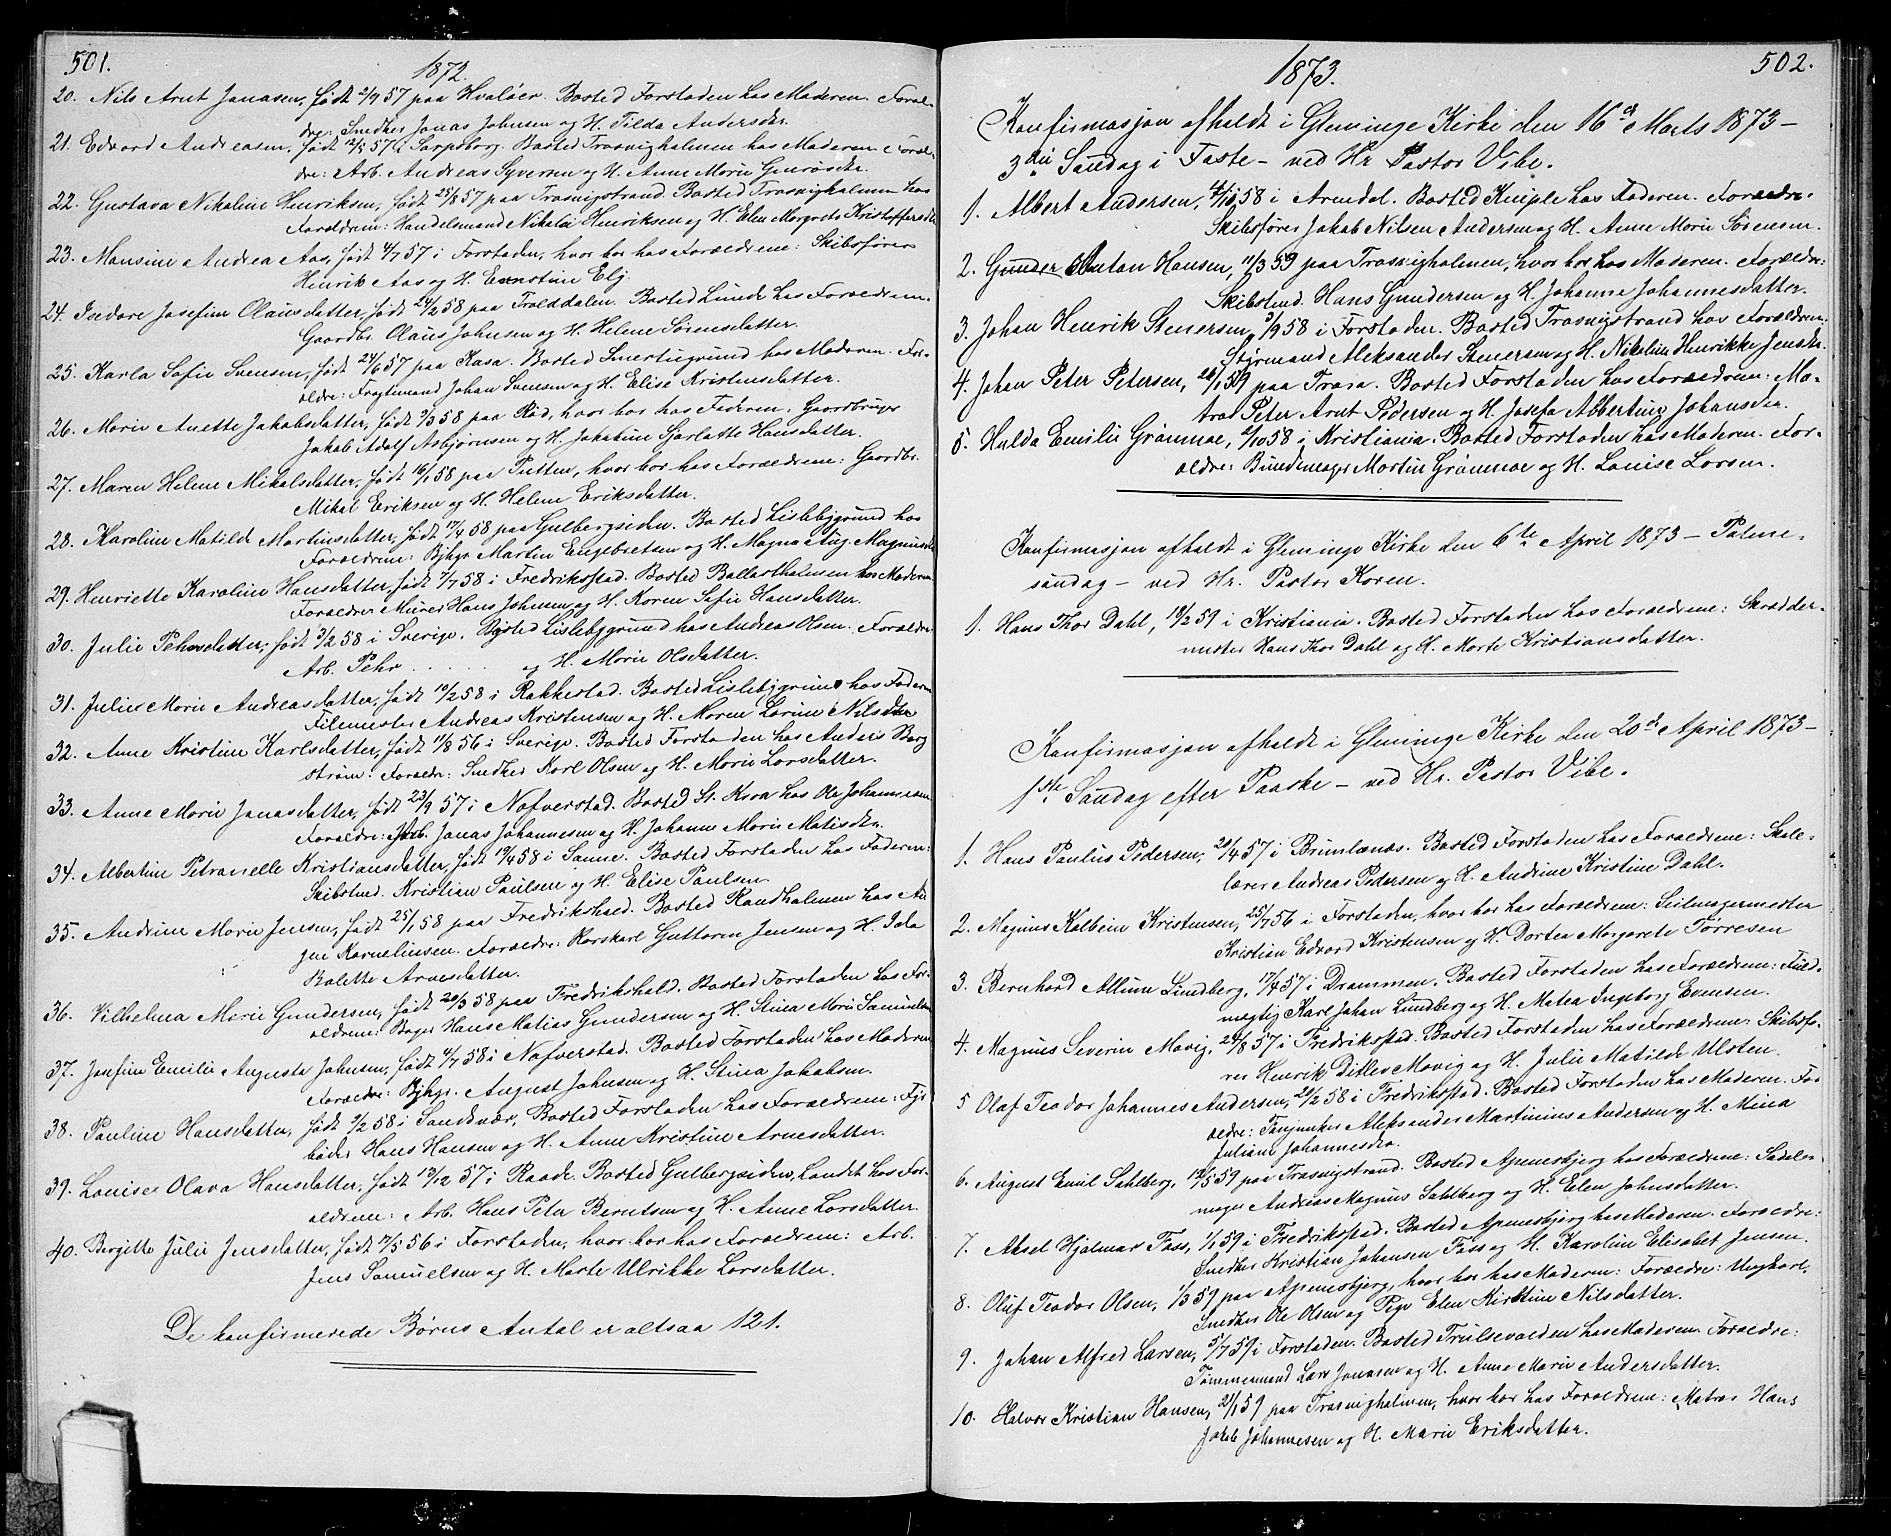 501.
1872.
20. Nils Arnt Jonasen, født 2/9 57 paa Hvaløer. Bosted Forstaden hos Moderen. Foræl-
dre: Snedker Jonas Johnsen og H. Tilda Andersdtr.
21. Edvard Andreasen, født 12/5 57 i Sarpsborg. Bosted Trosvigholmen hos Moderen. Foræl-
dre: Arb. Andreas Syversen og H. Anne Marie
22. Gustava Nikoline Henriksen, født 25/8 57 paa Trosvigstrand. Bosted Trosvigholmen hos
Forældrene: Handelsmand Nikolai Henriksen og H. Elen Margrete Kristoffersdtr
23. Monsine Andrea Aas, født 4/7 57 i Forstaden, hvor bor hos Forældrene: Skibsfører
Henrik Aas og H. Ernstine Elj.
24. Isedore Josefine Olausdatter, født 24/2 58 paa Trolddalen. Bosted Lunde hos Forældrene.
Gaardbr. Olaus Johnsen og H. Helene Sørensdatter.
25. Karla Sofie Svensen, født 24/6 57 paa Kasa. Bosted Smertugrund hos Moderen. For-
ældre: Fragtemand Johan Svensen og H. Elise Kristensdatter.
26. Marie Anette Jakobsdatter, født 3/3 58 paa Rød, hvor bor hos Faderen. Gaardbruger
Jakob Adolf Asbjørnsen og H. Jakobine Sjarlotte Hansdatter.
27. Maren Helene Mikalsdatter, født 16/1 58 paa Putten, hvor bor hos Forældrene: Gaardbr.
Mikal Eriksen og H. Helene Eriksdatter.
28. Karoline Matilde Martinsdatter, født 17/4 58 paa Gulbergsiden. Bosted Lislebygrund hos
Forældrene: Bjhgr. Martin Engebretsen og H. Magna Aug. Magnusdtr
29. Henriette Karoline Hansdatter, født 7/7 58 i Fredrikstad. Bosted Ballastholmen hos Moderen
Forældre Murer Hans Johnsen og H. Karen Sofie Hansdatter.
30. Julie Pehrsdatter, født 3/2 58 i Sverige. Bosted Lislebygrund hos Andreas Olsen. Forældre
Arb. Pehr . . . . . og H. Marie Olsdatter.
31. Julie Marie Andreasdatter, født 10/2 58 i Rakkestad. Bosted Lislebygrund hos Faderen
Filemester Andreas Kristensen og H. Maren Lorine Nilsdtr
32. Anne Kristine Karlsdatter, født 11/8 56 i Sverige. Bosted Forstaden hos Anders Berg
strøm. Forældr: Snedker Karl Olsen og H. Marie Larsdatter.
33. Anne Marie Jonasdatter, født 23/9 57 i Nafverstad. Bosted St. Kora hos Ole Johannesen
Forældre: Arb. Jonas Johannesen og H. Johanne Marie Matisdtr.
34. Albertine Petronelle Kristiansdatter, født 19/4 58 i Sanne. Bosted Forstaden hos Faderen:
Skibstmd. Kristian Paulsen og H. Elise Paulsen
35. Andrine Marie Jensen, født 25/1 58 paa Fredrikshald. Bosted Sandholmen hos Au
gen Kornelinsen. Forældre: Karskarl Guttorm Jensen og H. Jola
Bolette Arnesdatter.
36. Vilhelma Marie Gundersen, født 20/3 58 paa Fredrikshald. Bosted Forstaden hos For-
ældrene: Bager Hans Matias Gundersen og H. Stina Marie Samuelsen
37. Josefine Emilie Auguste Johnsen, født 4/7 58 i Nafverstad. Bosted Forstaden hos Moderen
Forældre: Bjhgr. August Johnsen og H. Stina Jakobsen.
38. Pauline Hansdatter, født 9/2 58 i Sandsvær, Bosted Forstaden hos Forældrene: Fyr
bøder Hans Hansen og H. Anne Kristine Arnesdatter.
39. Louise Olava Hansdatter, født 13/12 57 i Raade. Bosted Gulbergsiden, Landet hos For-
ældrene: Arb. Hans Peter Berntsen og H. Anne Larsdatter.
40. Bergitte Julie Jensdatter, født 17/5 56 i Forstaden, hvor bor hos Forældrene: Arb.
Jens Samuelsen og H. Marte Ulrikke Larsdatter.
De konfirmerede Børns Antal er altsaa 121.
502.
1873.
Konfirmasjon afholdt i Glemminge Kirke den 16de Marts 1873 –
3die Søndag i Faste – ved Hr Pastor Vibe.
1. Albert Andersen, 4/10 58 i Arendal. Bosted Kniple hos Faderen. Forældre.
Skibsfører Jakob Nilsen Andersen og H. Anne Marie Sørensen.
2. Gunder Anton Hansen, 11/3 59 paa Trosvigholmen, hvor bor hos Moderen. Forældre:
Skibstmd. Hans Gundersen og H. Johanne Johannesdatter.
3. Johan Henrik Stenersen, 5/9 58 i Forstaden. Bosted Trosvigstrand hos Forældrene:
Styrmand Aleksander Stenersen og H. Nikoline Henrikke Jensdtr.
4. Johan Peter Petersen, 26/1 59 paa Trara. Bosted Forstaden hos Forældrene: Ma-
tros Peter Arnt Pedersen og H. Josefa Albertine Johansdtr.
5. Hulda Emilie Grønmoe, 2/10 58 i Kristiania. Bosted Forstaden hos Moderen. For-
ældre: Bundtmager Martin Grønmoe og H. Louise Larsen.
Konfirmasjon afholdt i Glemminge Kirke den 6te April 1873 – Palme-
søndag – ved Hr. Pastor Koren.
1. Hans Thor Dahl, 18/2 59 i Kristiania. Bosted Forstaden hos Forældrene: Skrædder-
mester Hans Thor Dahl og H. Marte Kristiansdatter.
Konfirmasjon afholdt i Glemminge Kirke den 20de April 1873 –
1ste Søndag efter Paaske – ved Hr. Pastor Vibe.
1. Hans Paulus Pedersen, 20/4 57 i Brunlanæs. Bosted Forstaden hos Forældrene: Skole-
lærer Andreas Pedersen og H. Andrine Kristine Dahl.
2. Magnus Kolbein Kristensen, 25/7 56 i Forstaden, hvor bor hos Forældrene: Seilmagermester
Kristian Edvard Kristensen og H. Dortea Margarete Torresen
3. Bernhard Allum Lindberg, 17/4 57 i Drammen. Bosted Forstaden hos Forældrene: Fuld-
mægtig Karl Johan Lindberg og H. Matea Ingeborg Evensen.
4. Magnus Severin Movig, 29/8 57 i Fredrikstad. Bosted Forstaden hos Forældrene: Skibsfø-
rer Henrik Ditlev Movig og H. Julie Matilde Ulsten.
5 Olaf Teodor Johannes Andersen, 20/2 58 i Fredrikstad. Bosted Forstaden hos Moderen. For
ældre: Tøijunker Aleksander Martinius Andersen og H. Mina
Juliane Johannesdtr.
6. August Emil Sahlberg, 12/5 59 paa Trosvigstrand. Bosted Apenesbjerg hos Forældrene: Sadel-
mager Andreas Magnus Sahlberg og H. Elen Johnsdatter.
7. Aksel Hjalmar Foss, 1/1 59 i Fredrikstad. Bosted Apenesbjerg hos Moderen. Forældre:
Snedker Kristian Johansen Foss og H. Karoline Elisabet Jensen.
8. Oluf Teodor Olsen, 1/3 59 paa Apenesbjerg, hvor bor hos Moderen: Forældre: Ungkarl,
Snedker Ole Olsen og Pige Elen Kirstine Nilsdatter.
9. Johan Alfred Larsen, 5/7 59 i Forstaden. Bosted Trulsevolden hos Moderen. Forældre:
Tømmermand Lars Jonasen og H. Anne Marie Andersdatter.
10. Halvor Kristian Hansen, 21/1 59 paa Trosvigholmen, hvor bor hos Forældrene: Matros Hans
Jakob Johannesen og H. Marie Eriksdatter.